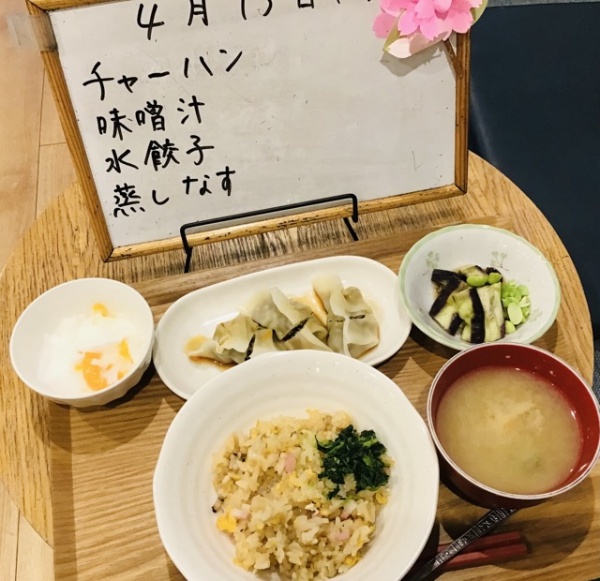 4月15日
チャーハン
味噌汁
水餃子
蒸しなす